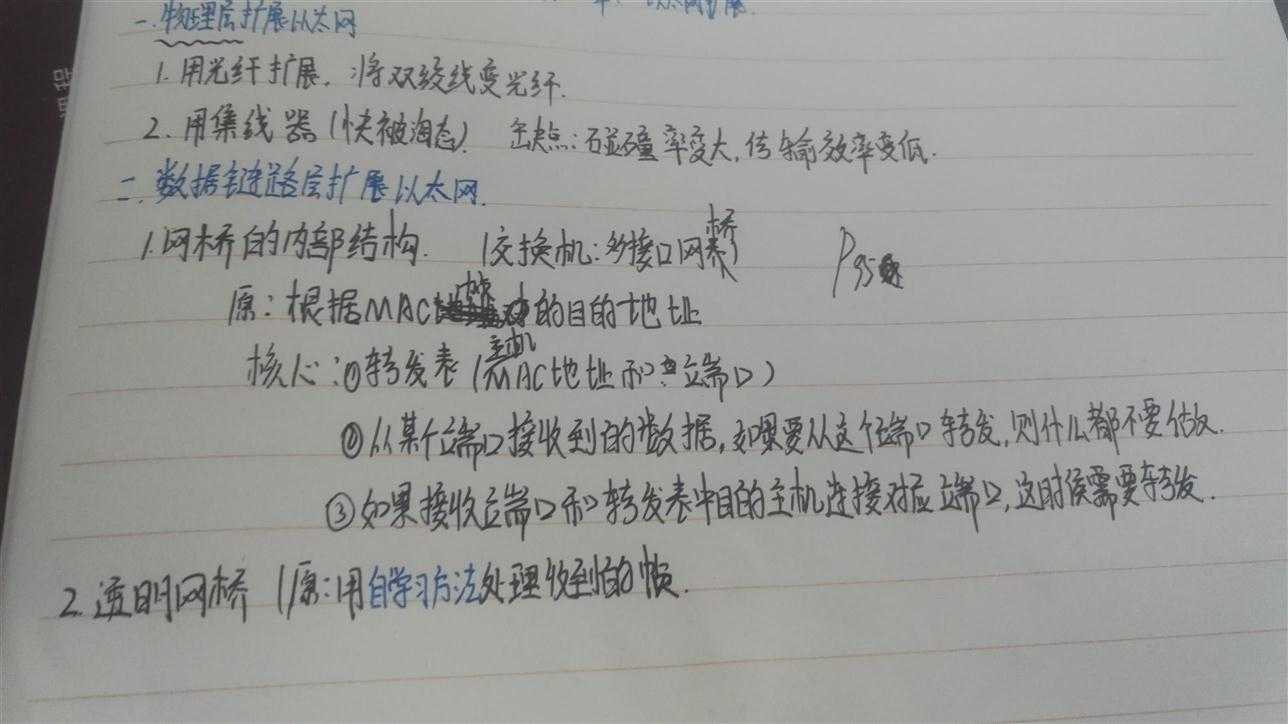 以太网扩展.
一. 物理层扩展以太网
1. 用光纤扩展. 将双绞线变光纤.
2. 用集线器 (快被淘态). 缺点: 碰撞率变大, 传输效率变低.
二. 数据链路层扩展以太网.
1. 网桥的内部结构. (交换机: 多接口网桥) P95
原: 根据MAC帧的目的地址
核心: ①转发表 (主机MAC地址和端口)
②从某个端口接收到的数据, 如果要从这个端口转发, 则什么都不要做.
③如果接收端口和转发表中目的主机连接对应端口, 这时候需要转发.
2. 透明网桥 (原: 用自学习方法处理收到的帧.